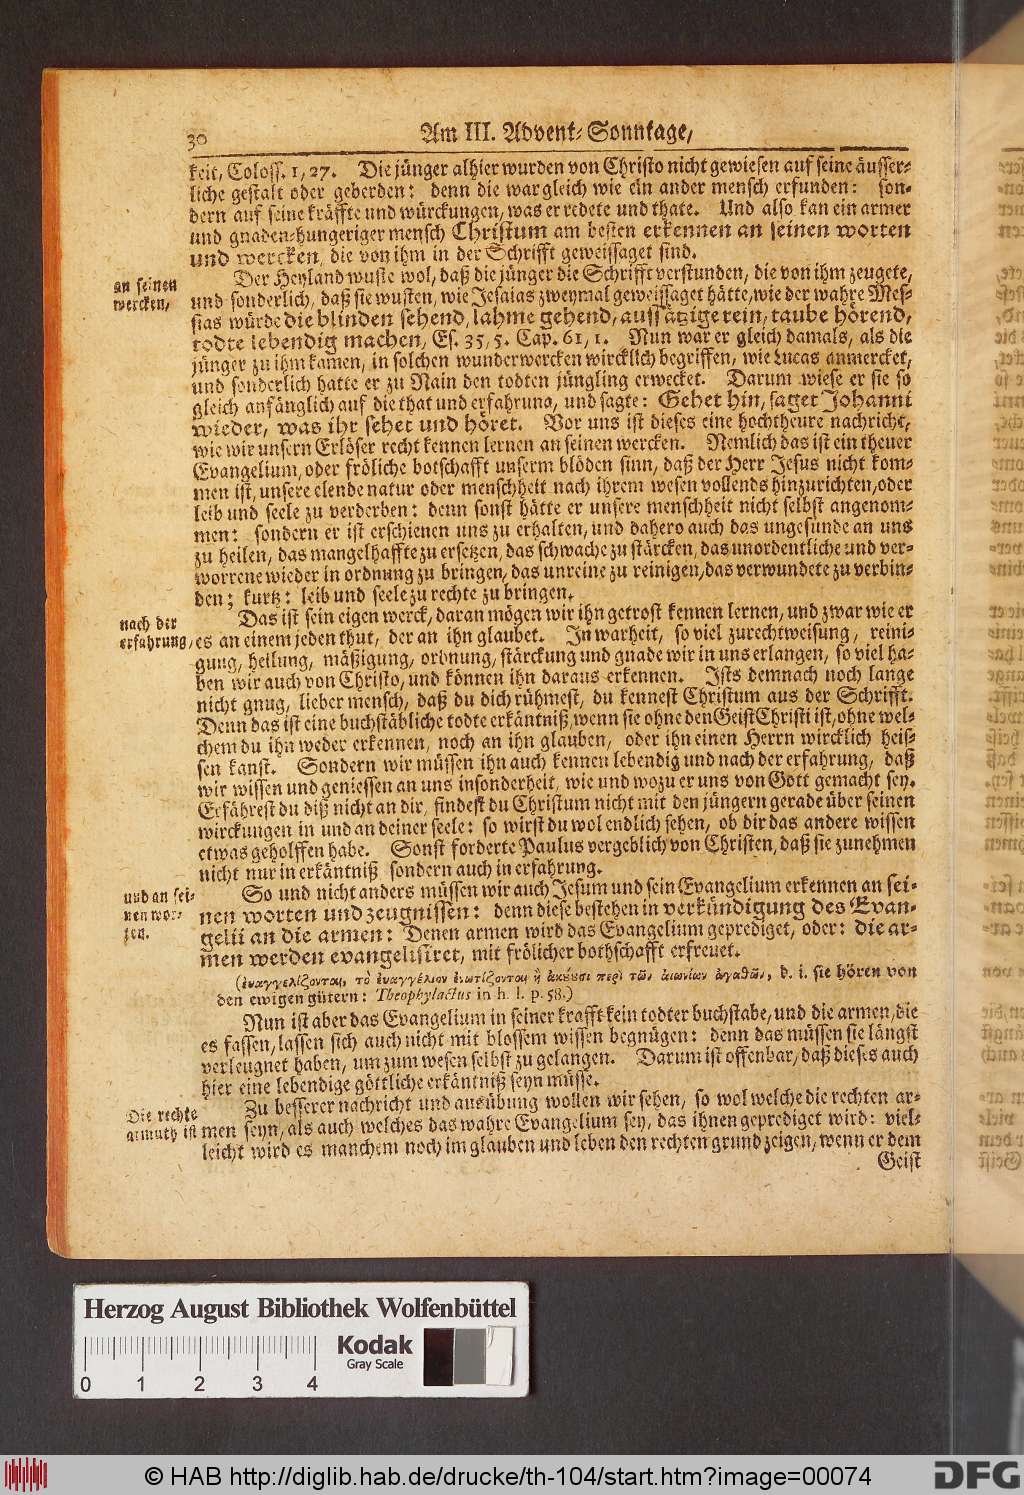 30
Am III. Advent-Sonntage,
keit, Coloss. 1, 27. Die jünger alhier wurden von Christo nicht gewiesen auf seine äusser-
liche gestalt oder geberden: denn die war gleich wie ein ander mensch erfunden: son-
dern auf seine kräffte und würckungen, was er redete und thate. Und also kan ein armer
und gnaden-hungeriger mensch Christum am besten erkennen an seinen worten
und wercken, die von ihm in der Schrifft geweissaget sind.
an seinen
wercken,
Der Heyland wuste wol, daß die jünger die Schrifft verstunden, die von ihm zeugete,
und sonderlich, daß sie wusten, wie Jesaias zweymal geweissaget hätte, wie der wahre Mes-
sias würde die blinden sehend, lahme gehend, aussätzige rein, taube hörend,
todte lebendig machen, Es. 35, 5. Cap. 61, 1. Nun war er gleich damals, als die
jünger zu ihm kamen, in solchen wunderwercken wircklich begriffen, wie Lucas anmercket,
und sonderlich hatte er zu Nain den todten jüngling erwecket. Darum wiese er sie so
gleich anfänglich auf die that und erfahrung, und sagte: Gehet hin, saget Johanni
wieder, was ihr sehet und höret. Vor uns ist dieses eine hochtheure nachricht,
wie wir unsern Erlöser recht kennen lernen an seinen wercken. Nemlich das ist ein theuer
Evangelium, oder fröliche botschafft unserm blöden sinn, daß der Herr Jesus nicht kom-
men ist, unsere elende natur oder menschheit nach ihrem wesen vollends hinzurichten, oder
leib und seele zu verderben: denn sonst hätte er unsere menschheit nicht selbst angenom-
men: sondern er ist erschienen uns zu erhalten, und dahero auch das ungesunde an uns
zu heilen, das mangelhaffte zu ersetzen, das schwache zu stärcken, das unordentliche und ver-
worrene wieder in ordnung zu bringen, das unreine zu reinigen, das verwundete zu verbin-
den; kurtz: leib und seele zu rechte zu bringen.
nach der
erfahrung,
Das ist sein eigen werck, daran mögen wir ihn getrost kennen lernen, und zwar wie er
es an einem jeden thut, der an ihn glaubet. In warheit, so viel zurechtweisung, reini-
gung, heilung, mäßigung, ordnung, stärckung und gnade wir in uns erlangen, so viel ha-
ben wir auch von Christo, und können ihn daraus erkennen. Ists demnach noch lange
nicht gnug, lieber mensch, daß du dich rühmest, du kennest Christum aus der Schrifft.
Denn das ist eine buchstäbliche todte erkäntniß, wenn sie ohne den Geist Christi ist, ohne wel-
chem du ihn weder erkennen, noch an ihn glauben, oder ihn einen Herrn wircklich heis-
sen kanst. Sondern wir müssen ihn auch kennen lebendig und nach der erfahrung, daß
wir wissen und geniessen an uns insonderheit, wie und wozu er uns von Gott gemacht sey.
Erfährest du diß nicht an dir, findest du Christum nicht mit den jüngern gerade über seinen
wirckungen in und an deiner seele: so wirst du wol endlich sehen, ob dir das andere wissen
etwas geholffen habe. Sonst forderte Paulus vergeblich von Christen, daß sie zunehmen
nicht nur in erkäntniß sondern auch in erfahrung.
und an sei-
nen wor-
ten.
So und nicht anders müssen wir auch Jesum und sein Evangelium erkennen an sei-
nen worten und zeugnissen: denn diese bestehen in verkündigung des Evan-
gelii an die armen: Denen armen wird das Evangelium geprediget, oder: die ar-
men werden evangelisiret, mit frölicher bothschafft erfreuet.
(ἐυαγγελίζονται, τὸ ἐυαγγέλιον ἐνωτίζονται ἢ ἀκύυσι περὶ τῶν αἰωνίων ἀγαθῶν, d. i. sie hören von
den ewigen gütern: Theophylactus in h. l. p. 58.)
Nun ist aber das Evangelium in seiner krafft kein todter buchstabe, und die armen, die
es fassen, lassen sich auch nicht mit blossem wissen begnügen: denn das müssen sie längst
verleugnet haben, um zum wesen selbst zu gelangen. Darum ist offenbar, daß dieses auch
hier eine lebendige göttliche erkäntniß seyn müsse.
Die rechte
armuth ist
Zu besserer nachricht und ausübung wollen wir sehen, so wol welche die rechten ar-
men seyn, als auch welches das wahre Evangelium sey, das ihnen geprediget wird: viel-
leicht wird es manchem noch im glauben und leben den rechten grund zeigen, wenn er dem
Geist
Herzog August Bibliothek Wolfenbüttel
0 1 2 3 4
Kodak
Gray Scale
© HAB http://diglib.hab.de/drucke/th-104/start.htm?image=00074
DFG